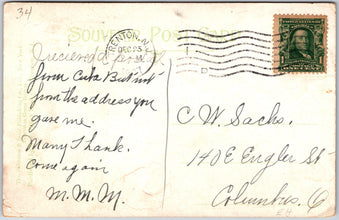 34
Souvenir Post Card
TRENTON, N.J.
DEC 25
Received
from Cuba But not
from the address you
gave me.
Many Thank.
Come again
M. M. M.
C. W. Sachs.
140 E Engler St
Columbus, O